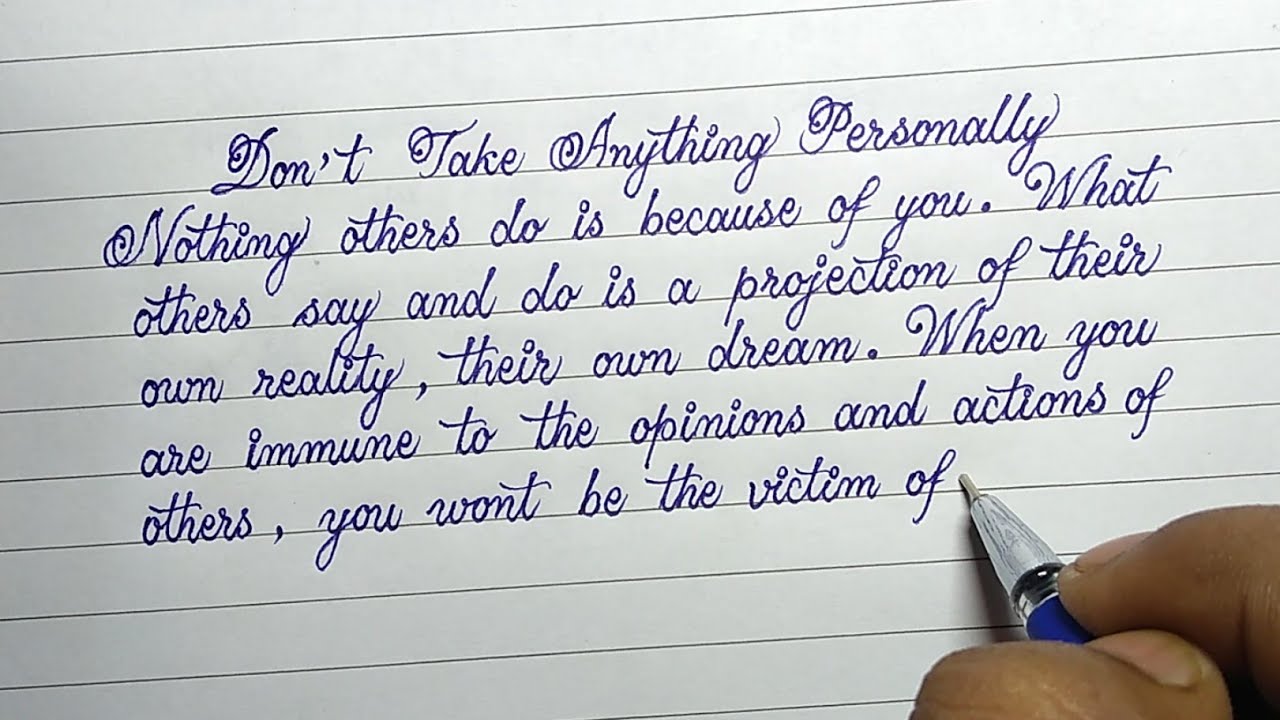 Don't Take Anything Personally
Nothing others do is because of you. What
others say and do is a projection of their
own reality, their own dream. When you
are immune to the opinions and actions of
others, you wont be the victim of